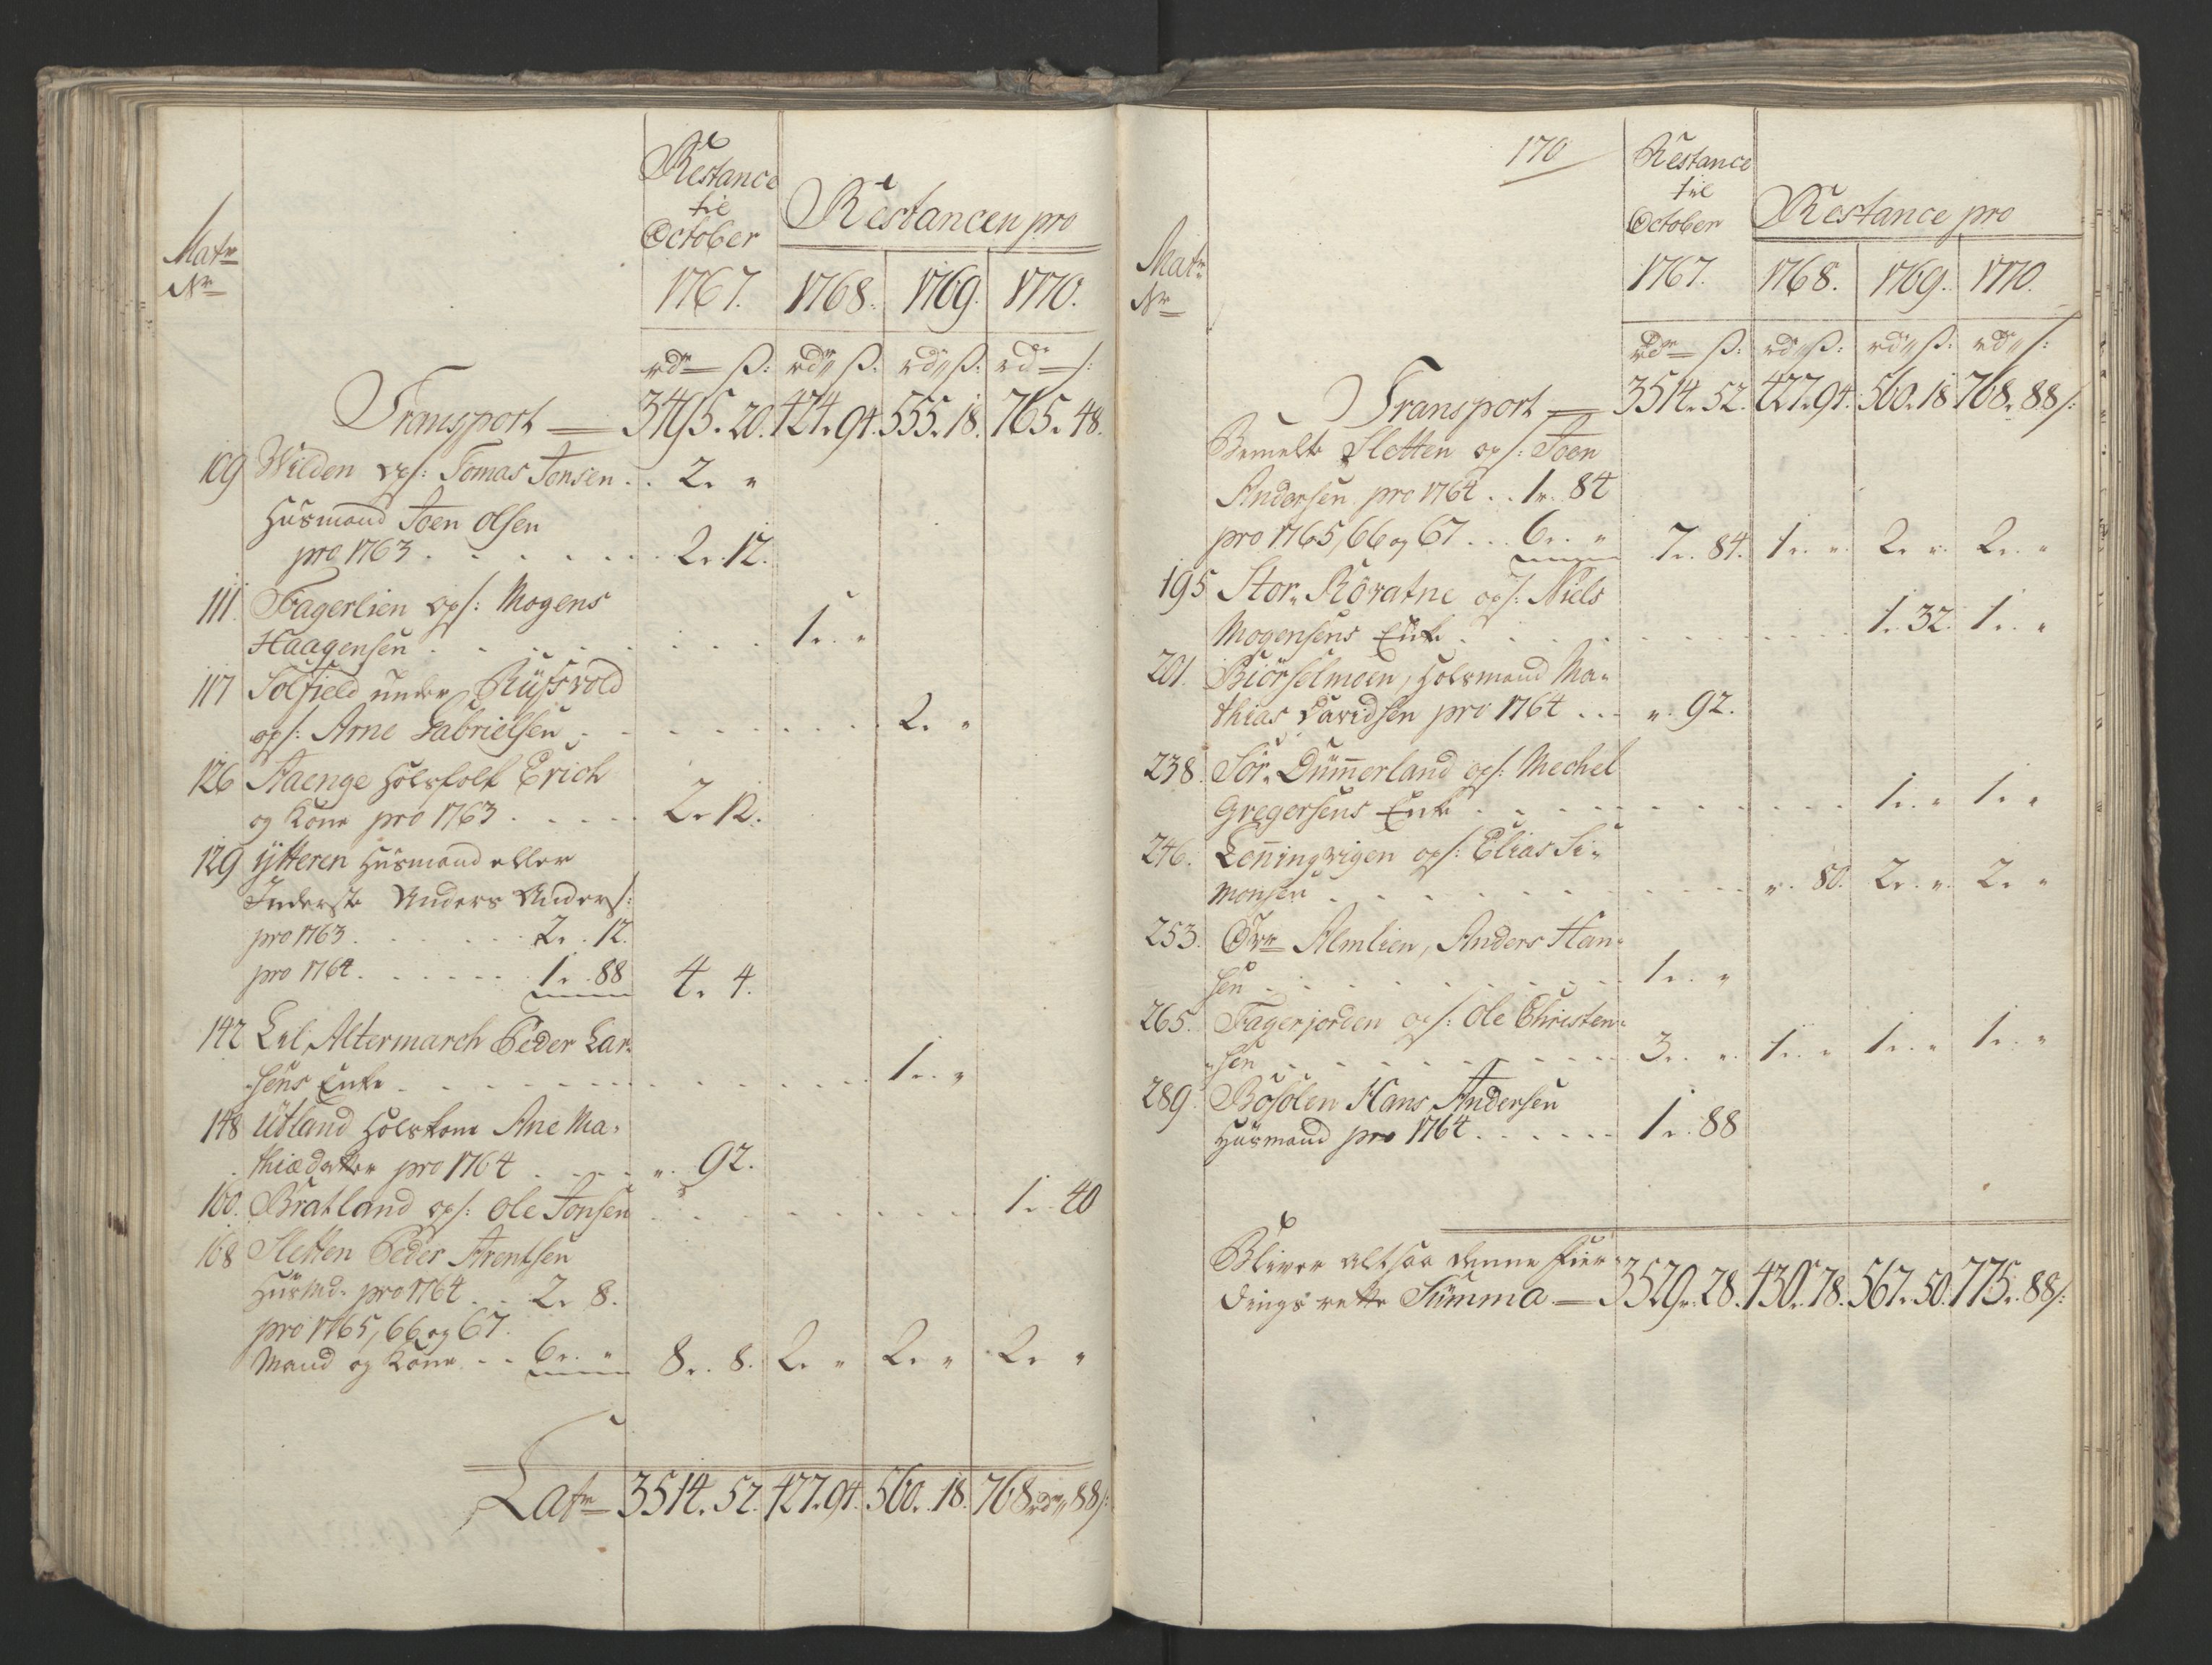 Restance
til
October
Restancen pro
Matr
Nr
1767. 1768. 1769. 1770.
rdr ß: rdr ß: rdr ß: rdr ß:
Transport 3495. 20. 424. 94. 555. 18. 765. 48.
109 Wilden ops: Tomas Jonsen . . 2. "
Husmand Joen Olsen
pro 1763 . . . . . . 2. 12.
111. Fagerlien ops: Mogens
Haagensen . . . . . . . . 1. "
117 Solfield under Russvold
ops: Arne Gabrielsen . . . . . . . . 2. "
126 Staenge Holsfolk Erich
og Kone pro 1763 . . . . . 2. 12.
129 Ytteren Husmand eller
Inderste Anders Anders:
pro 1763 . . . . . . 2. . 12.
pro 1764 . . . . . . 1. . 88 4. 4.
142 Lil Altermarch Peder Lar-
sens Enke . . . . . . . . . . 1. . "
148 Utland Holskone Ane Ma-
thiædatter pro 1764 . . . . ". 92.
160. Bratland ops: Ole Jonsen . . . . . . . . 1. . 40
168 Sletten Peder Arentsen
Husmd. pro 1764 . . 2. 8.
pro 1765, 66 og 67.
Mand og Kone . . 6. . " 8. . 8. 2. " 2. " 2. "
Latr 3514. 52. 427. 94. 560. 18. 768 rdr 88 ß:
170
Restance
til
October
Restance pro
Matr
Nr
1767. 1768. 1769. 1770.
rdr ß: rdr ß: rdr ß: rdr ß:
Transport 3514. 52. 427. 94. 560. 18 768. 88 ß:
Bemelte Sletten ops: Joen
Andersen pro 1764 . . 1. 84
pro 1765, 66 og 67 . . . 6. . " 7. . 84. 1. . ". 2. ". 2. . "
195 Stor-Røvatne ops: Niels
Mogensens Enke . . . . . . . . . . 1. . 32. 1. . "
201. Biørselmoen, Holsmand Ma-
thias Davidsen pro 1764 . . . ". 92.
238. Sør-Dummerland ops: Mechel
Gregersens Enke . . . . . . . . . . 1. . " 1. "
246. Lenningvigen ops: Elias Si-
monsen . . . . . . . . . . ". . 80. 2. . ". 2. "
253. Øvr Almlien, Anders Han-
sen . . . . . . . . . . 1. . "
265. Fagerjorden ops: Ole Christen-
sen . . . . . . . . . . 3. . ". 1. . " 1. . " 1. . "
289. Bosolen Hans Andersen
Husmand pro 1764 . . . . . . 1. . 88
Bliver altsaa denne Fier-
dings rette Summa 3529. 28. 430. 78. 567. 50. 775. 88 ß: